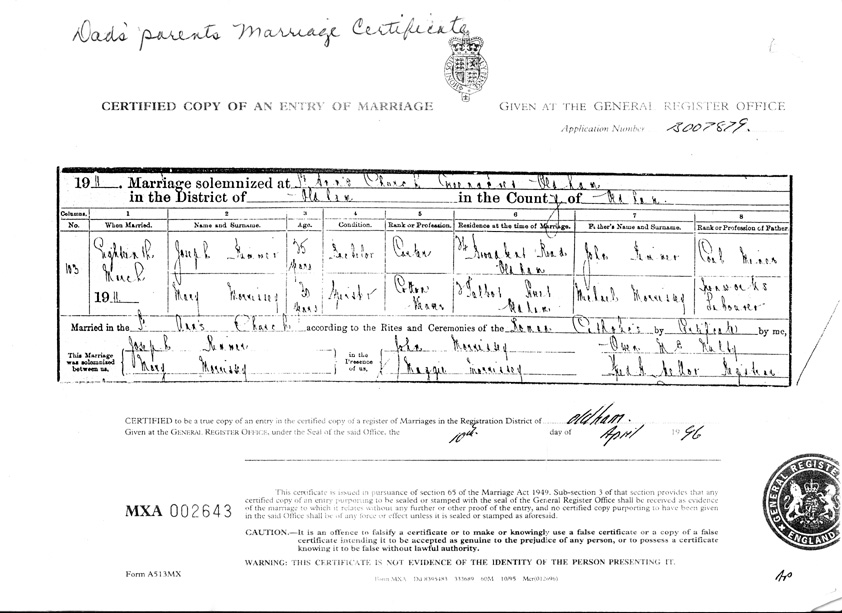 Dad's parents Marriage Certificate
CERTIFIED COPY OF AN ENTRY OF MARRIAGE
GIVEN AT THE GENERAL REGISTER OFFICE
Application Number B007879.
19 11. Marriage solemnized at St Ann's Church Greenacres Oldham
in the District of Oldham in the County of Oldham
Columns. 1 2 3 4 5 6 7 8
No. When Married. Name and Surname. Age. Condition. Rank or Profession. Residence at the time of Marriage. Father's Name and Surname. Rank or Profession of Father
103 Eighteenth March 19 11 Joseph 35 years Bachelor Carter Road Oldham John Coal Miner
Mary Morrissey 30 years Spinster Cotton 3 Talbot Street Oldham Michael Morrissey Ironworks Labourer
Married in the St Ann's Church according to the Rites and Ceremonies of the Roman Catholics by Certificate by me,
This Marriage was solemnized between us,
Joseph
Mary Morrissey
in the Presence of us,
John Morrissey
Maggie Morrissey
Owen
Registrar
CERTIFIED to be a true copy of an entry in the certified copy of a register of Marriages in the Registration District of Oldham.
Given at the GENERAL REGISTER OFFICE, under the Seal of the said Office, the 10th day of April 1996
MXA 002643
This certificate is issued in pursuance of section 65 of the Marriage Act 1949. Sub-section 3 of that section provides that any
certified copy of an entry purporting to be sealed or stamped with the seal of the General Register Office shall be received as evidence
of the marriage to which it relates without any further or other proof of the entry, and no certified copy purporting to have been given
in the said Office shall be of any force or effect unless it is sealed or stamped as aforesaid.
CAUTION.—It is an offence to falsify a certificate or to make or knowingly use a false certificate or a copy of a false
certificate intending it to be accepted as genuine to the prejudice of any person, or to possess a certificate
knowing it to be false without lawful authority.
WARNING: THIS CERTIFICATE IS NOT EVIDENCE OF THE IDENTITY OF THE PERSON PRESENTING IT.
Form A513MX
GENERAL REGISTER
ENGLAND